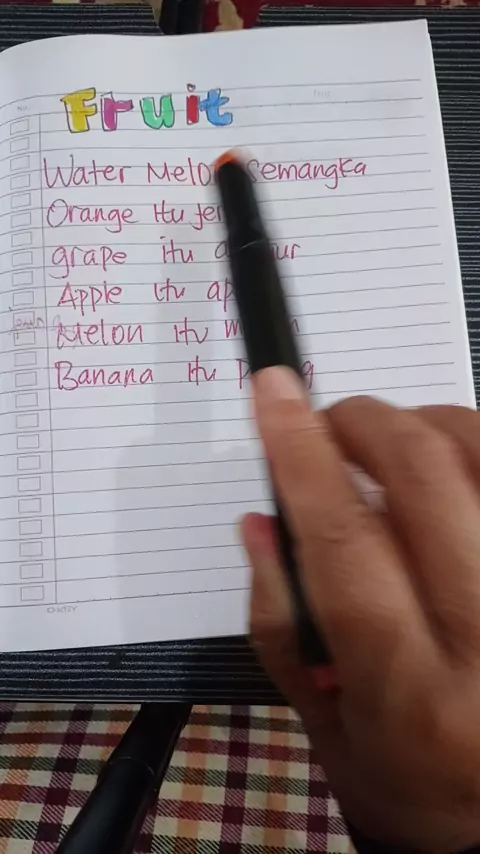 Fruit
Water Melon semangka
Orange itu
grape itu
Apple itu
Melon itu
Banana itu